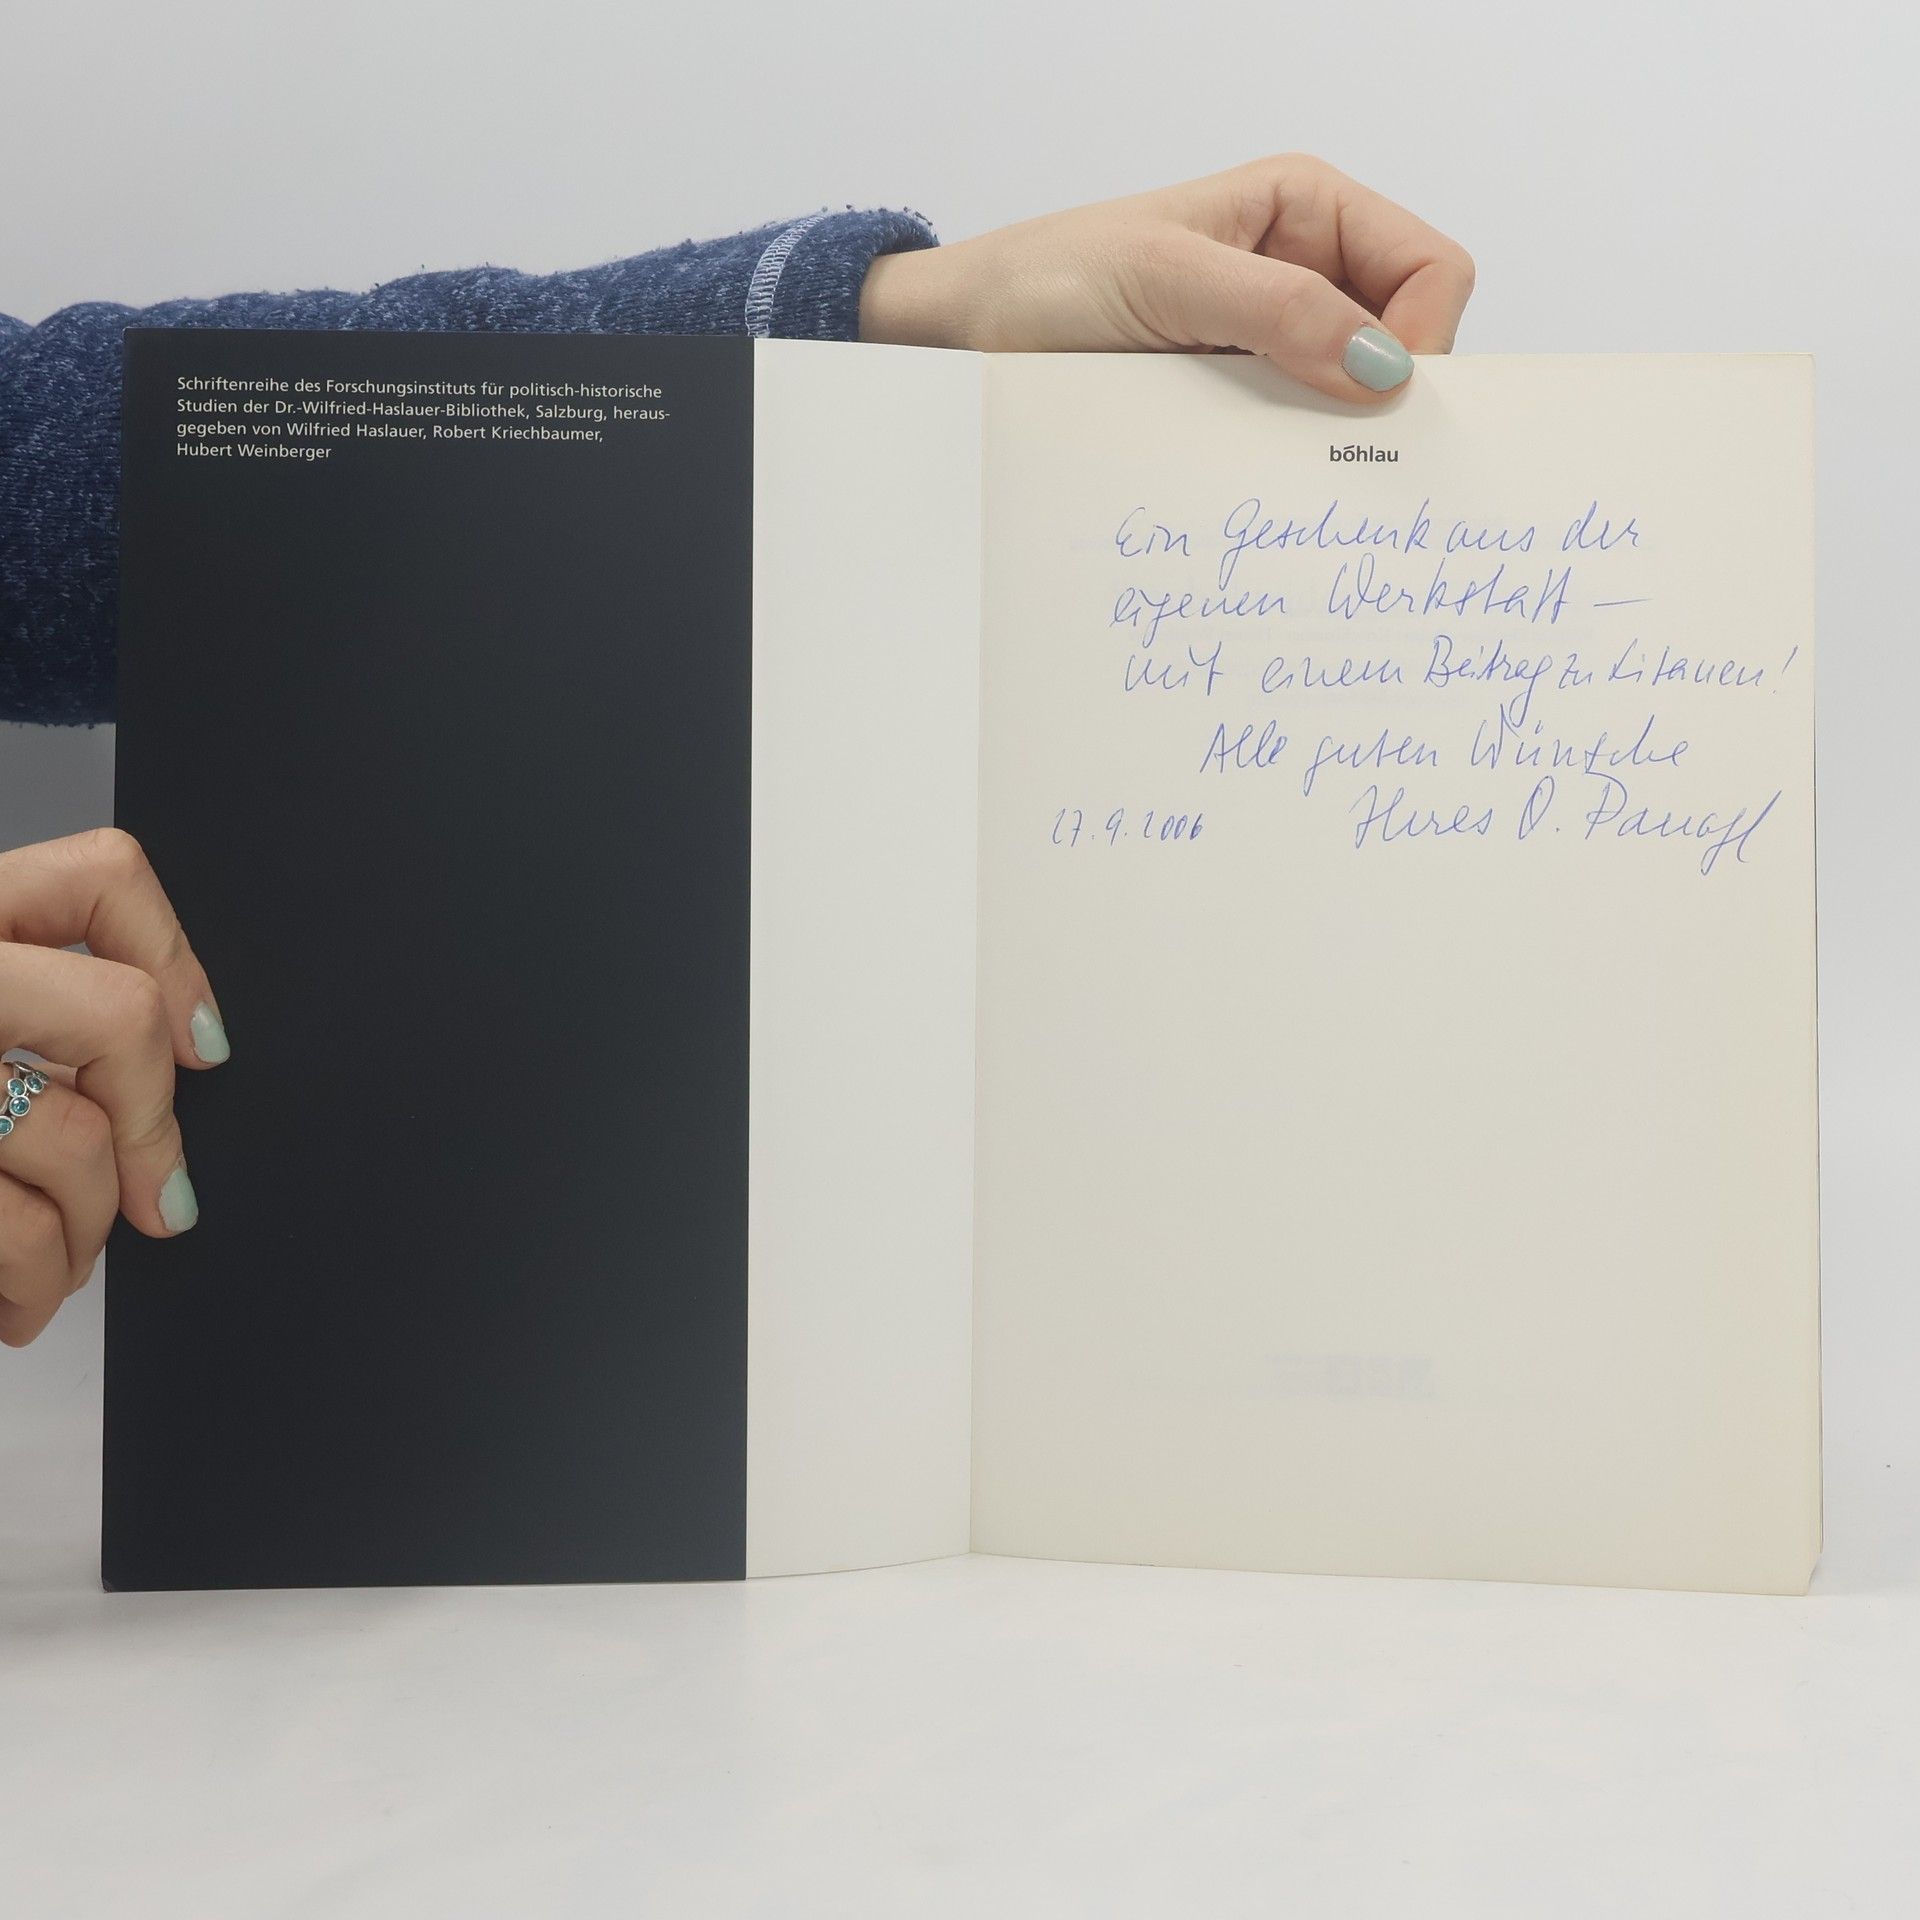 Schriftenreihe des Forschungsinstituts für politisch-historische
Studien der Dr.-Wilfried-Haslauer-Bibliothek, Salzburg, heraus-
gegeben von Wilfried Haslauer, Robert Kriechbaumer,
Hubert Weinberger
böhlau
Ein Geschenk aus der
eigenen Werkstatt —
mit einem Beitrag zu Litauen!
Alle guten Wünsche
27.9.2006 Ihres O. Panagl